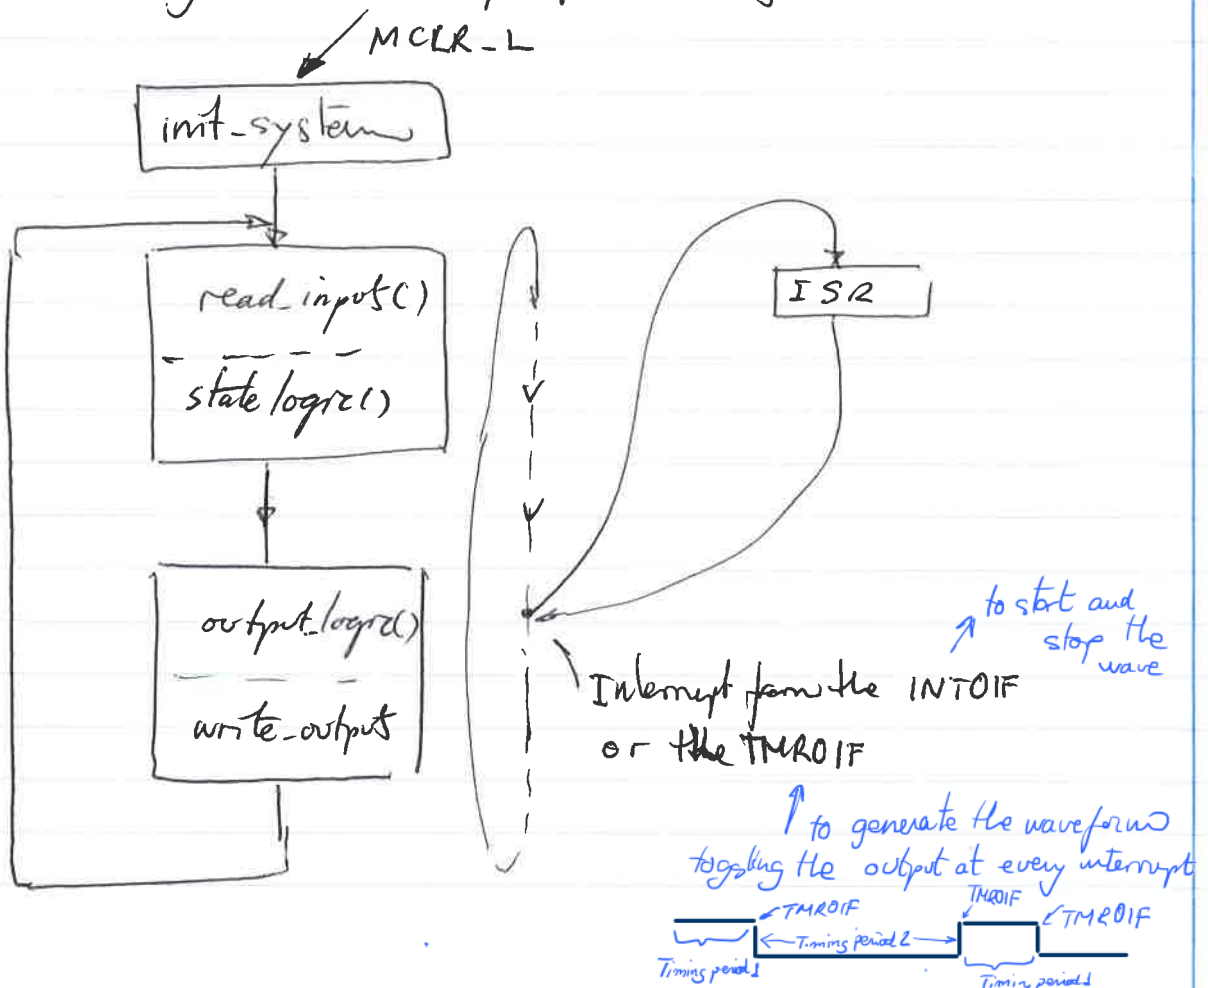 MCLR_L
init_system
read_input()
state logic()
output_logic()
write_output
ISR
Interrupt from the INT0IF
or the TMR0IF
to start and
stop the
wave
to generate the waveform
toggling the output at every interrupt
TMR0IF
TMR0IF
TMR0IF
Timing period 2
Timing period 1
Timing period 1